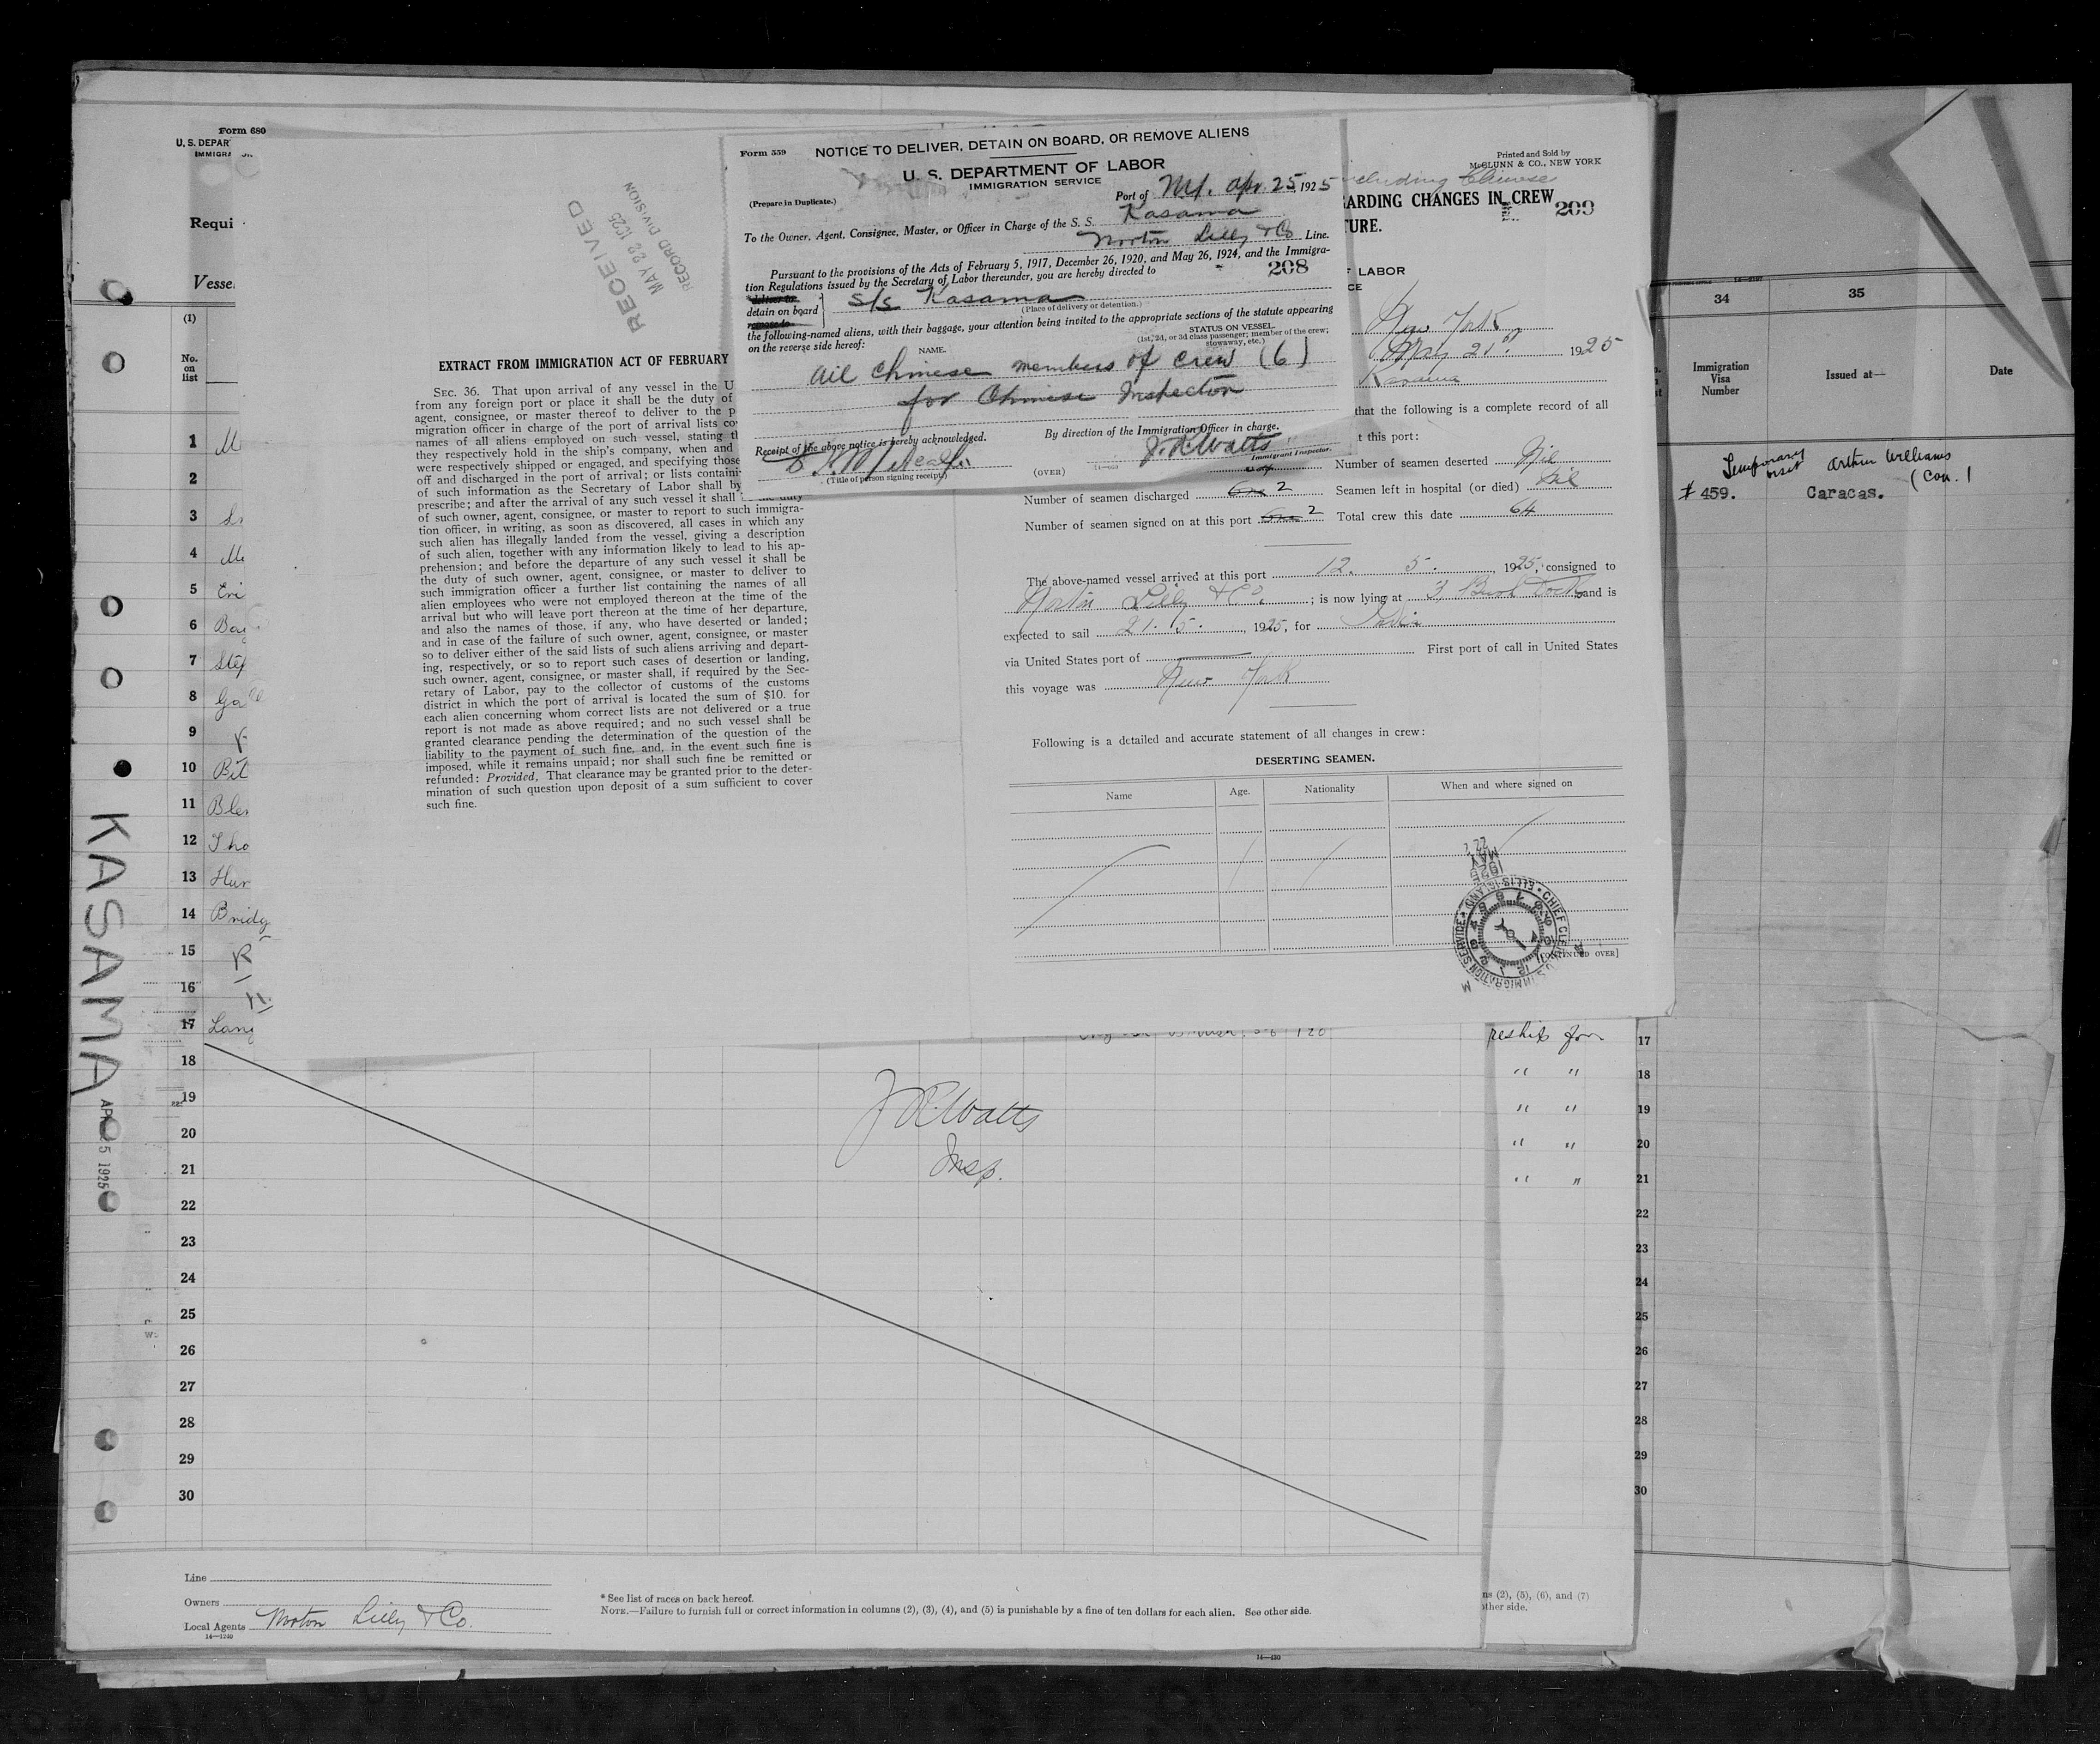 Form 680
U. S. DEPAR
IMMIGRA
Requi
Vesse
(1)
No.
on
list
1
2
3
4
5 Eri
6
7
8 Ga
9
10
11 Bler
12 Tho
13 Hur
14 Bridg
15
16
17 Lang
18
19
20
21
22
23
24
25
26
27
28
29
30
KASAMA
APR 25 1925
J R Watts
Insp.
Line
Owners
Local Agents Norton Lilly & Co.
14—1240
* See list of races on back hereof.
NOTE.—Failure to furnish full or correct information in columns (2), (3), (4), and (5) is punishable by a fine of ten dollars for each alien. See other side.
RECEIVED
MAY 22 1925
RECORD DIVISION
EXTRACT FROM IMMIGRATION ACT OF FEBRUARY
SEC. 36. That upon arrival of any vessel in the U
from any foreign port or place it shall be the duty of
agent, consignee, or master thereof to deliver to the p
migration officer in charge of the port of arrival lists co
names of all aliens employed on such vessel, stating t
they respectively hold in the ship's company, when and
were respectively shipped or engaged, and specifying those
off and discharged in the port of arrival; or lists containi
of such information as the Secretary of Labor shall by
prescribe; and after the arrival of any such vessel it shall duty
of such owner, agent, consignee, or master to report to such immigra-
tion officer, in writing, as soon as discovered, all cases in which any
such alien has illegally landed from the vessel, giving a description
of such alien, together with any information likely to lead to his ap-
prehension; and before the departure of any such vessel it shall be
the duty of such owner, agent, consignee, or master to deliver to
such immigration officer a further list containing the names of all
alien employees who were not employed thereon at the time of the
arrival but who will leave port thereon at the time of her departure,
and also the names of those, if any, who have deserted or landed;
and in case of the failure of such owner, agent, consignee, or master
so to deliver either of the said lists of such aliens arriving and depart-
ing, respectively, or so to report such cases of desertion or landing,
such owner, agent, consignee, or master shall, if required by the Sec-
retary of Labor, pay to the collector of customs of the customs
district in which the port of arrival is located the sum of $10. for
each alien concerning whom correct lists are not delivered or a true
report is not made as above required; and no such vessel shall be
granted clearance pending the determination of the question of the
liability to the payment of such fine, and, in the event such fine is
imposed, while it remains unpaid; nor shall such fine be remitted or
refunded: Provided, That clearance may be granted prior to the deter-
mination of such question upon deposit of a sum sufficient to cover
such fine.
Form 559
NOTICE TO DELIVER, DETAIN ON BOARD, OR REMOVE ALIENS
U. S. DEPARTMENT OF LABOR
IMMIGRATION SERVICE
(Prepare in Duplicate.)
Port of N.Y. Apr. 25, 1925
To the Owner, Agent, Consignee, Master, or Officer in Charge of the S. S. Kasama
Norton Lilly & Co Line.
Pursuant to the provisions of the Acts of February 5, 1917, December 26, 1920, and May 26, 1924, and the Immigra-
tion Regulations issued by the Secretary of Labor thereunder, you are hereby directed to 208
deliver to
detain on board
remove to
S/S Kasama
(Place of delivery or detention.)
the following-named aliens, with their baggage, your attention being invited to the appropriate sections of the statute appearing
on the reverse side hereof:
NAME.
STATUS ON VESSEL.
(1st, 2d, or 3d class passenger; member of the crew;
stowaway, etc.)
All Chinese members of crew (6)
for Chinese Inspection
Receipt of the above notice is hereby acknowledged.
By direction of the Immigration Officer in charge.
J. R. Watts
Immigrant Inspector.
(Title of person signing receipt)
(OVER)
Printed and Sold by
McCLUNN & CO., NEW YORK
including Chinese
ARDING CHANGES IN CREW
209
TURE.
F LABOR
CE
New York
May 21st 1925
Kasama
that the following is a complete record of all
t this port:
Number of seamen deserted Nil
Number of seamen discharged One 2
Seamen left in hospital (or died) Nil
Number of seamen signed on at this port One 2
Total crew this date 64
The above-named vessel arrived at this port 12. 5. , 1925, consigned to
Norton Lilly & Co. ; is now lying at 3, Bush Dock and is
expected to sail 21. 5. , 1925, for
via United States port of First port of call in United States
this voyage was New York
Following is a detailed and accurate statement of all changes in crew:
DESERTING SEAMEN.
Name Age. Nationality When and where signed on
1925
MAY 22
CHIEF CLERK
U.S. IMMIGRATION SERVICE
ELLIS ISLAND
[CONTINUED OVER]
reship for
" "
" "
" "
" "
17
18
19
20
21
22
23
24
25
26
27
28
29
30
ns (2), (5), (6), and (7)
other side.
14—430
34
35
Immigration
Visa
Number
Issued at—
Date
Temporary
visit
Arthur Williams
(Con.)
# 459.
Caracas.